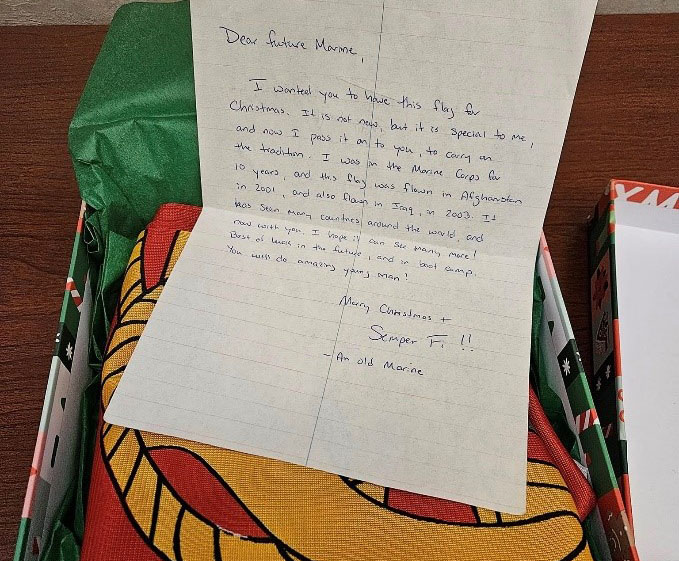 Dear future Marine,
I wanted you to have this flag for
Christmas. It is not new, but it is special to me,
and now I pass it on to you, to carry on
the tradition. I was in the Marine Corps for
10 years, and this flag was flown in Afghanistan
in 2001, and also flown in Iraq, in 2003. It
has seen many countries around the world, and
now with you. I hope it can see many more!
Best of luck in the future, and in boot camp.
You will do amazing young man!
Merry Christmas +
Semper Fi !!
- An old Marine
XM